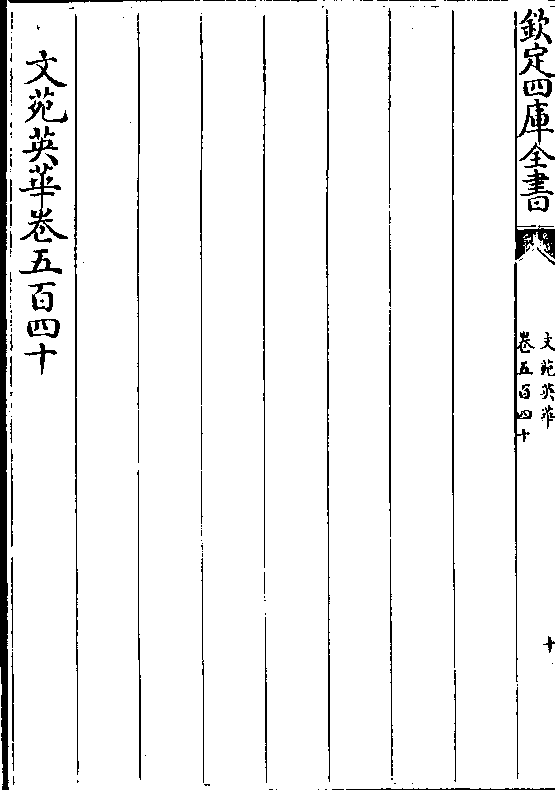 欽定四庫全書
文苑英華
卷五百四十
十
文苑英華卷五百四十